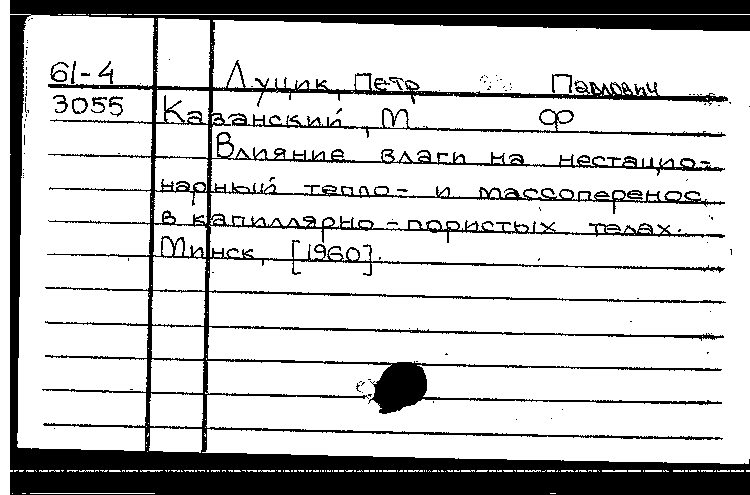 61-4 Луцик, Петр Павлович
3055 Казанский, М Ф
Влияние влаги на нестацио-
нарный тепло- и массоперенос
в капиллярно-пористых телах.
Минск, [1960].